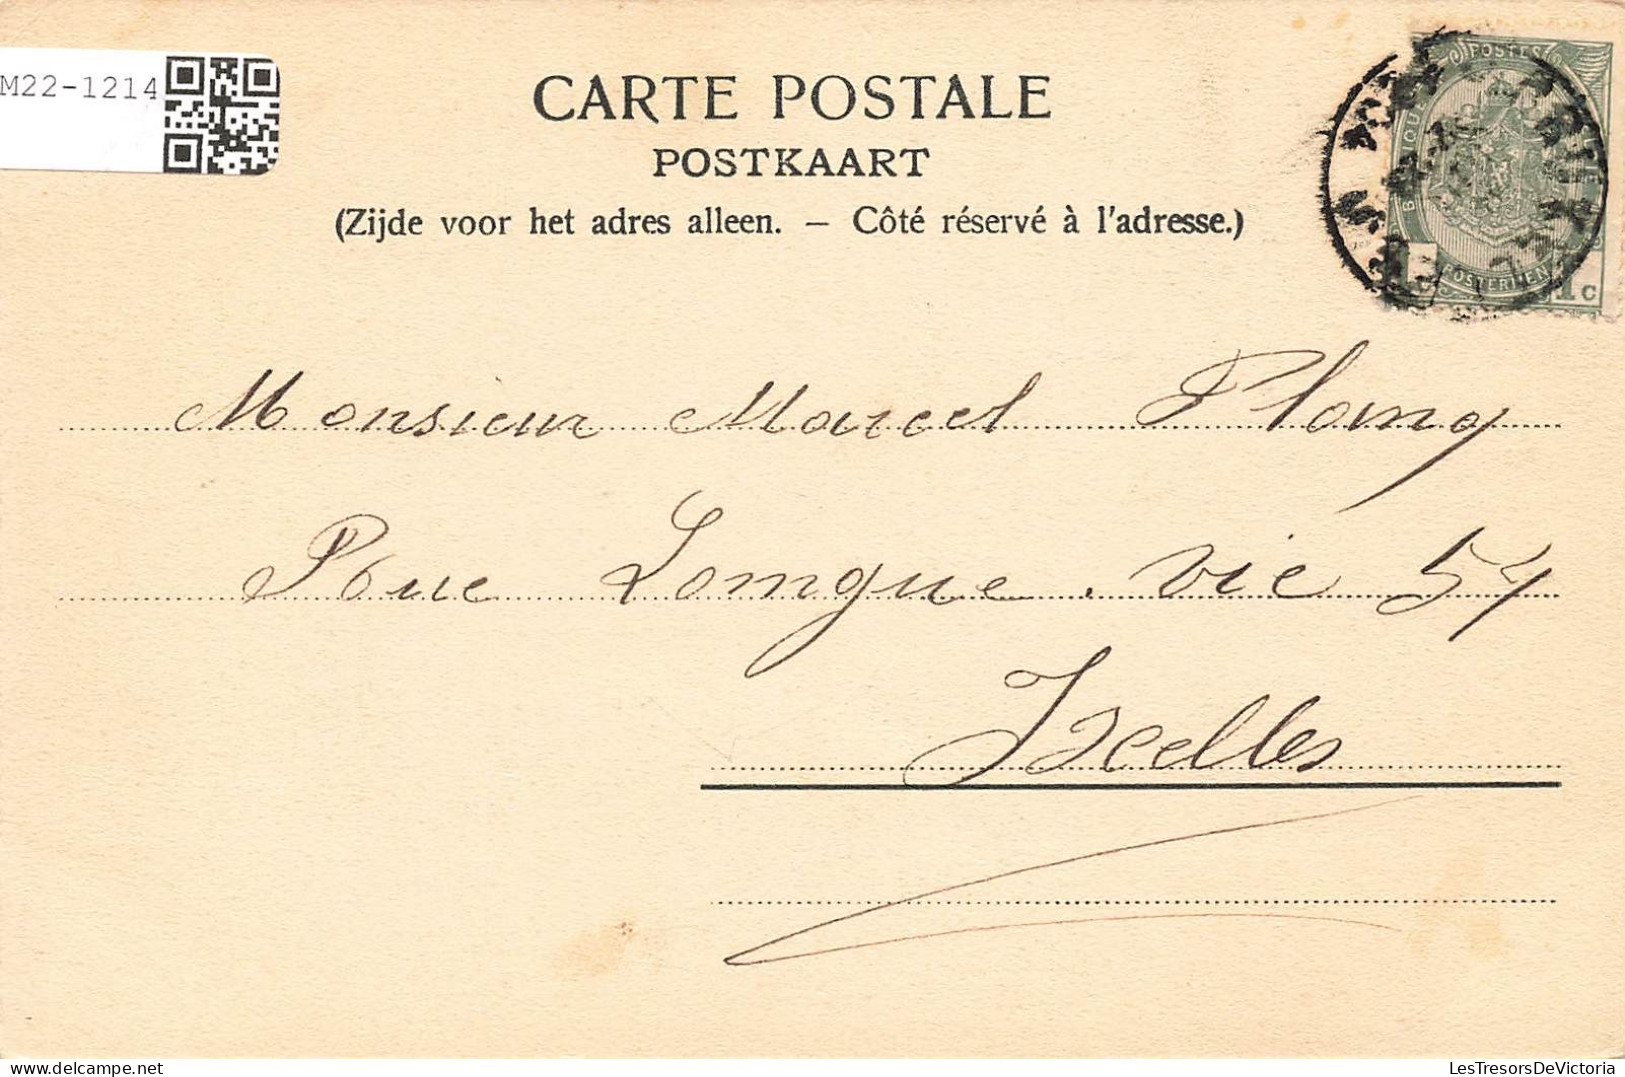 M22-1214
CARTE POSTALE
POSTKAART
(Zijde voor het adres alleen. — Côté réservé à l'adresse.)
POSTES
POSTERIJEN
1c
Monsieur Marcel Plany
Rue Longue. vie 54
Ixelles
LesTresorsDeVictoria